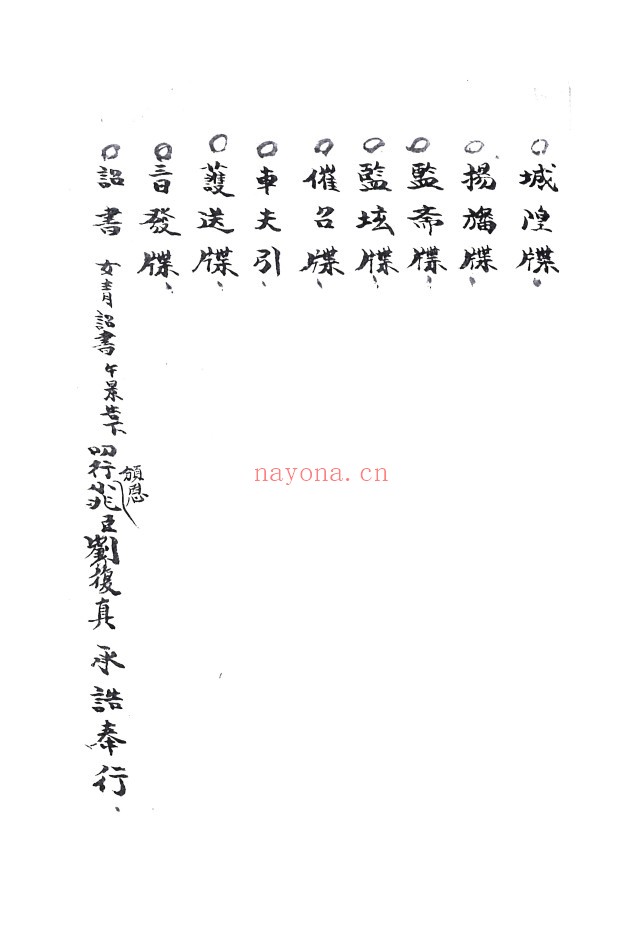 ○城隍牒、
○揚旛牒、
○監齋牒、
○監壇牒、
○催召牒、
○車夫引、
○護送牒、
○三日發牒、
○詔書 女青詔書 午景告下 叩行小兆臣劉復真 承誥奉行、
頒恩
nayona.cn